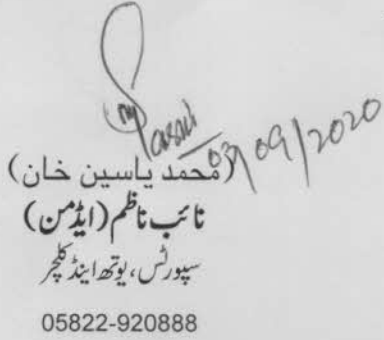 03/09/2020
(محمد یاسین خان)
نائب ناظم (ایڈمن)
سپورٹس، یوتھ اینڈ کلچر
05822-920888